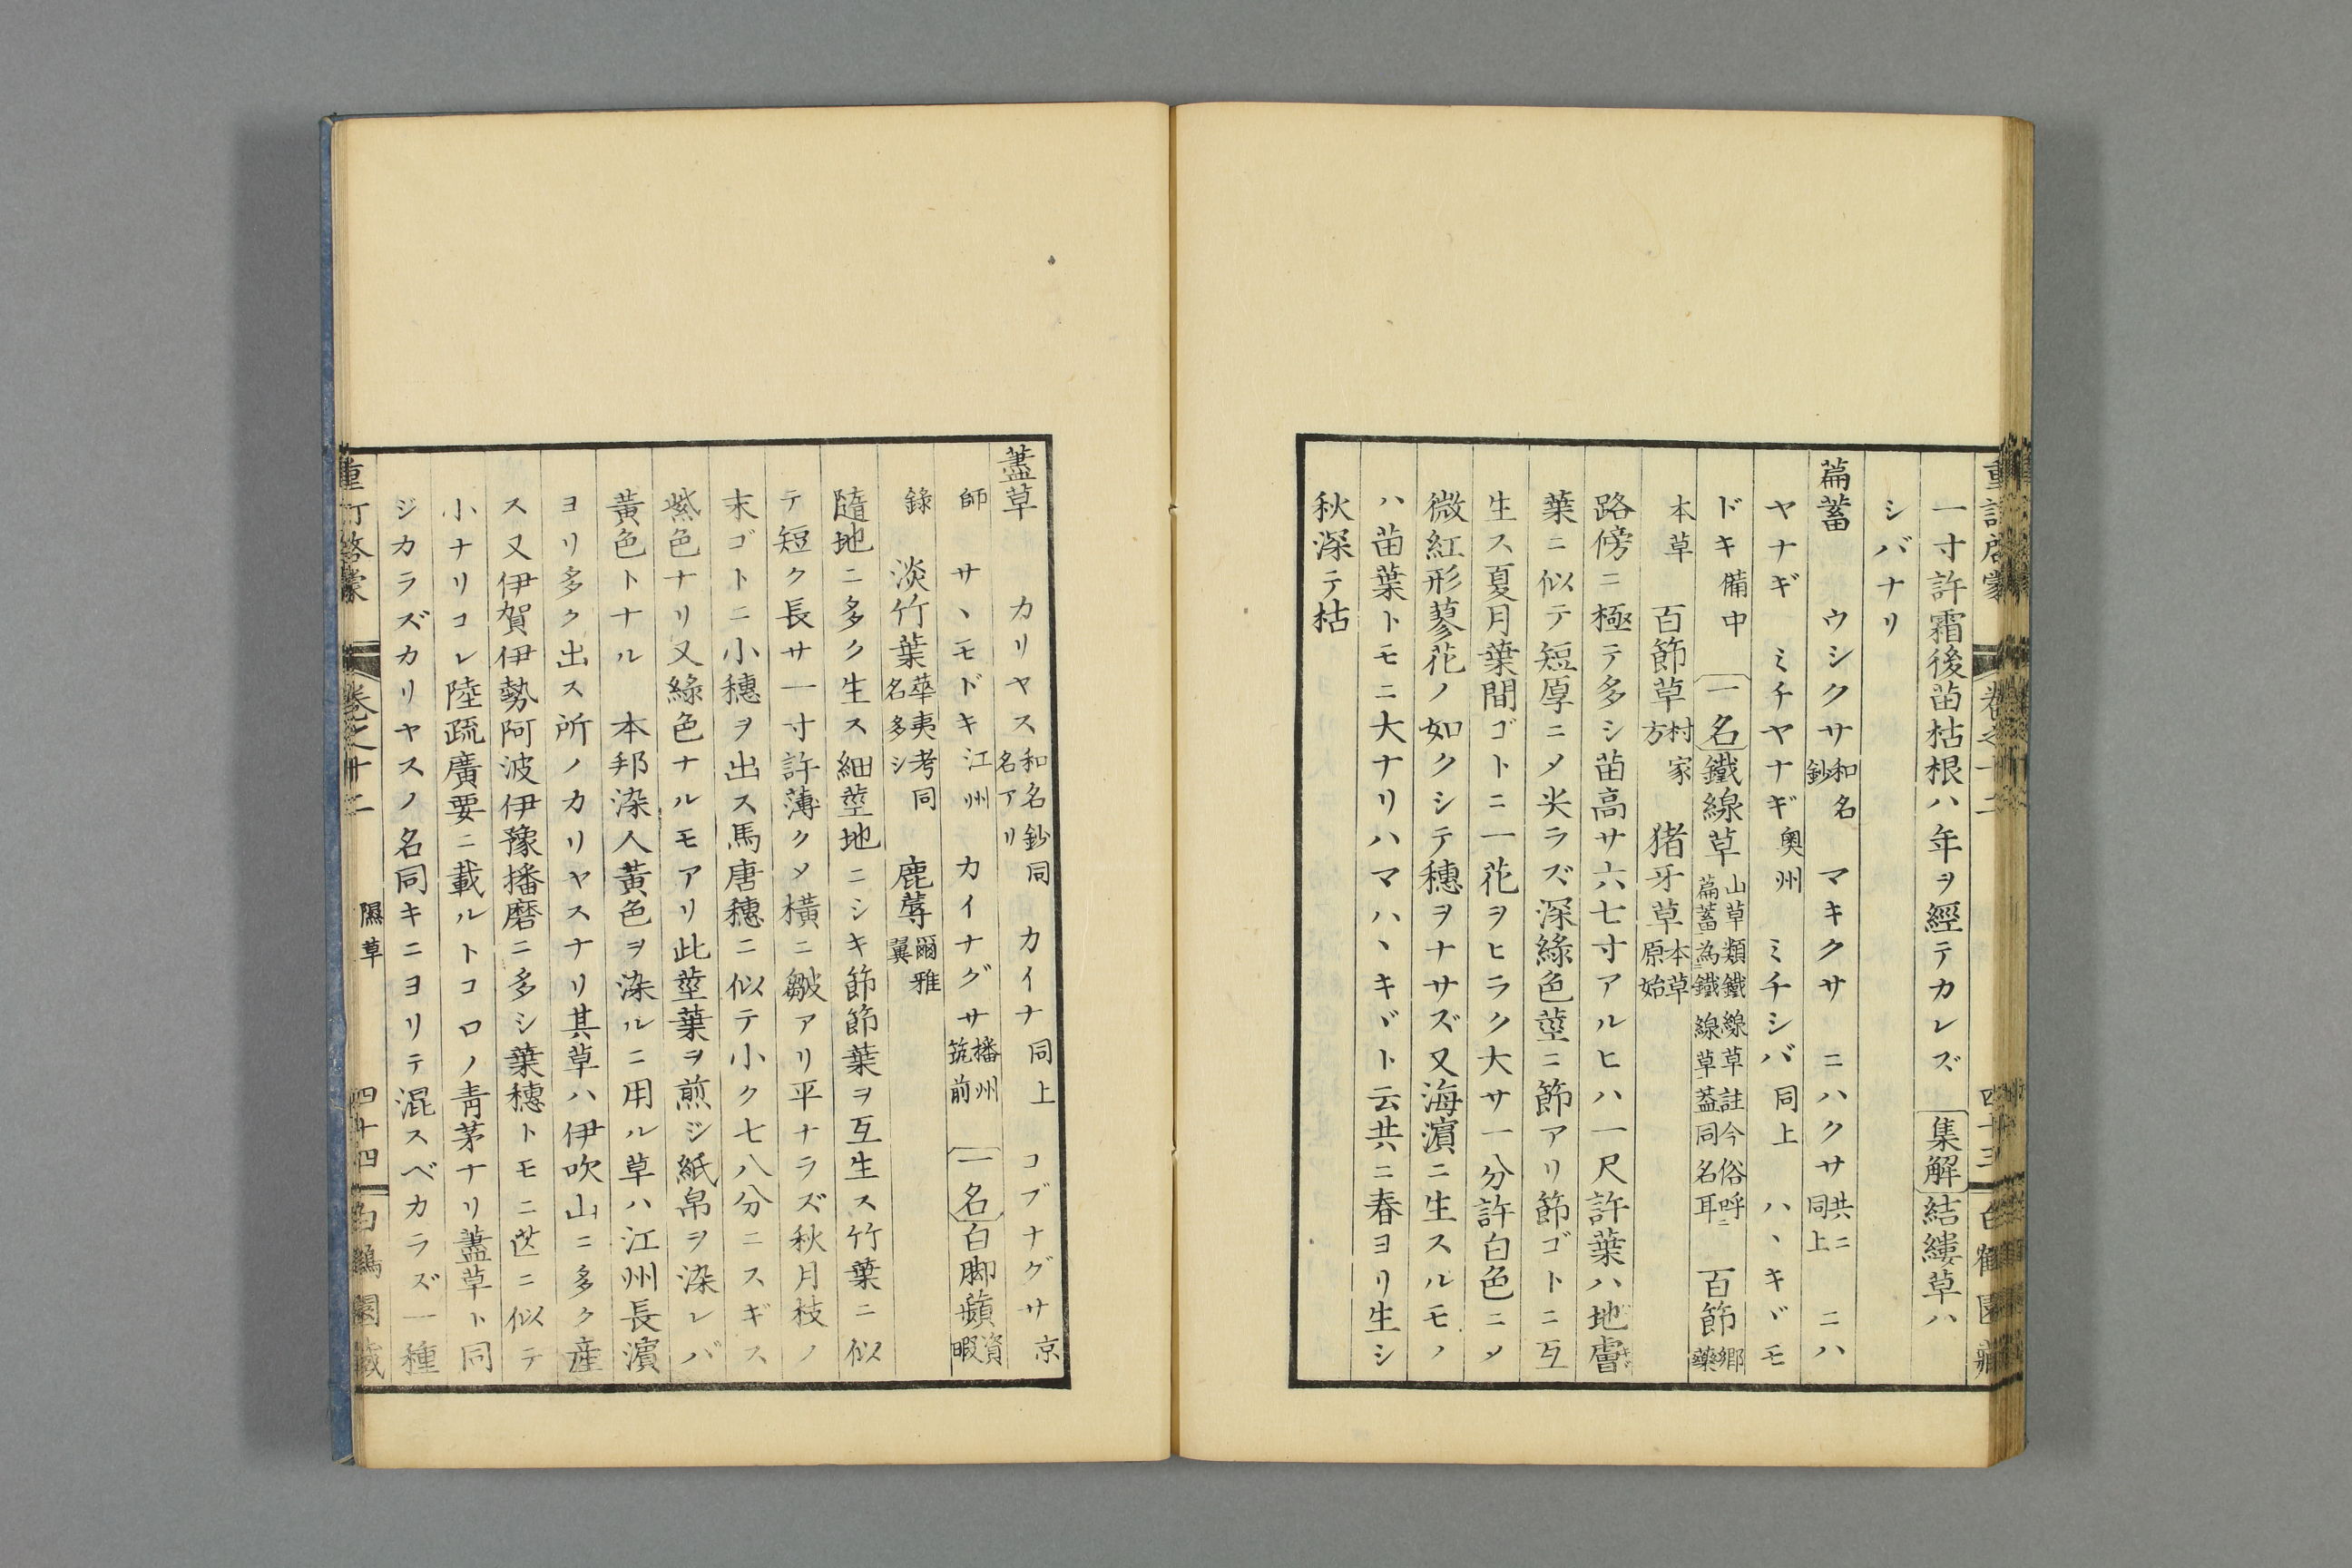 一寸許霜後苗枯根ハ年ヲ經テカレズ 集解 結縷草ハ
シバナリ
萹蓄 ウシクサ和名鈔 マキクサ ニハクサ共ニ同上 ニハ
ヤナギ ミチヤナギ奧州 ミチシバ同上 ハヽキヾモ
ドキ備中 一名 鐵線草山草類鐵線草註今俗呼萹蓄為鐵線草葢同名耳 百節鄉藥
本草 百節草村家方 猪牙草本草原始
路傍ニ極テ多シ苗高サ六七寸アルヒハ一尺許葉ハ地膚
葉ニ似テ短厚ニメ尖ラズ深綠色莖ニ節アリ節ゴトニ互
生ス夏月葉間ゴトニ一花ヲヒラク大サ一分許白色ニメ
微紅形蓼花ノ如クシテ穗ヲナサズ又海濵ニ生スルモノ
ハ苗葉トモニ大ナリハマハヽキヾト云共ニ春ヨリ生シ
秋深テ枯
藎草 カリヤス和名鈔同名アリ カイナ同上 コブナグサ京
師 サヽモドキ江州 カイナグサ播州筑前 一名 白脚蘋資暇
錄 淡竹葉華夷考同名多シ 鹿蓐爾雅翼
隨地ニ多ク生ス細莖地ニシキ節節葉ヲ互生ス竹葉ニ似
テ短ク長サ一寸許薄クメ橫ニ皺アリ平ナラズ秋月枝ノ
末ゴトニ小穗ヲ出ス馬唐穗ニ似テ小ク七八分ニスギス
紫色ナリ又綠色ナルモアリ此莖葉ヲ煎ジ紙帛ヲ染レバ
黃色トナル 本邦染人黃色ヲ染ルニ用ル草ハ江州長濵
ヨリ多ク出ス所ノカリヤスナリ其草ハ伊吹山ニ多ク産
ス又伊賀伊勢阿波伊豫播磨ニ多シ葉穗トモニ芒ニ似テ
小ナリコレ陸疏廣要ニ載ルトコロノ靑茅ナリ藎草ト同
ジカラズカリヤスノ名同キニヨリテ混スベカラズ一種
卷之十二 隰草 四十四